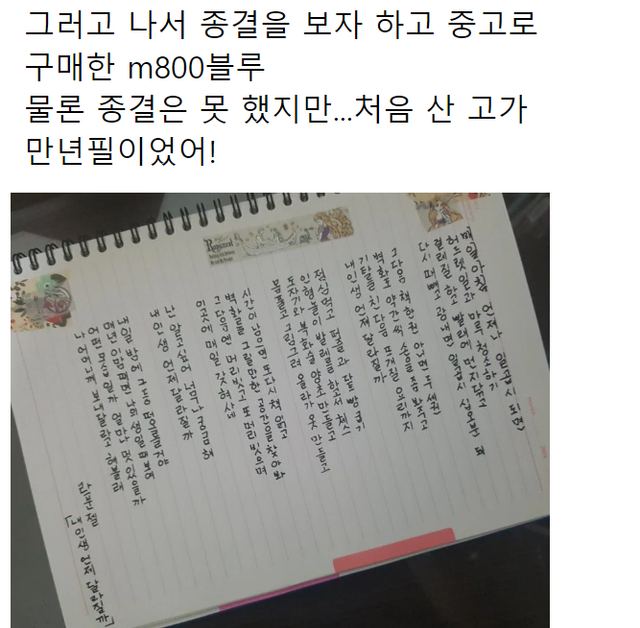 그러고 나서 종결을 보자 하고 중고로
구매한 m800블루
물론 종결은 못 했지만...처음 산 고가
만년필이었어!
Rapunzel
매일 아침 언제나 일곱시 되면
허드렛일과 마루 청소하기
걸레질 하고 빨래에 먼지닦고
다시 때 빼고 광내면 일곱시 십오분 돼
그 다음 책 한권 아니면 두세권
벽화도 약간씩 손을 좀 봐주고
기타를 친 다음 뜨개질 요리까지
내 인생 언제 달라질까
점심 먹고 퍼즐과 다트 빵 굽기
인형놀이 발레를 하고서 체스
도자기와 복화술 양초 만들고
몸풀고 그림그려 올라가 옷 만들고
시간이 남으면 또다시 책 읽고
벽화를 그릴만한 공간을 찾아봐
그 다음엔 머리 빗고 또 머리 빗으며
이곳에 매일 갇혀 사네
난 알고싶어 너무나 궁금해
내 인생 언제 달라질까
내일 밤에 그 등 떠오를거야
매년 이맘때면 나의 생일때 보여
어떤 모습일까 얼마나 멋있을까
나 어머니께 보내달라고 해볼래
라푼젤
[내 인생 언제 달라질까]